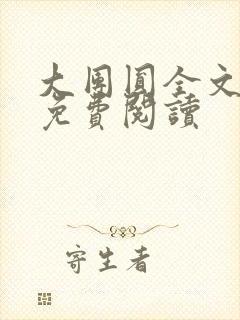 大團圓全文
免費閱讀
寄生者